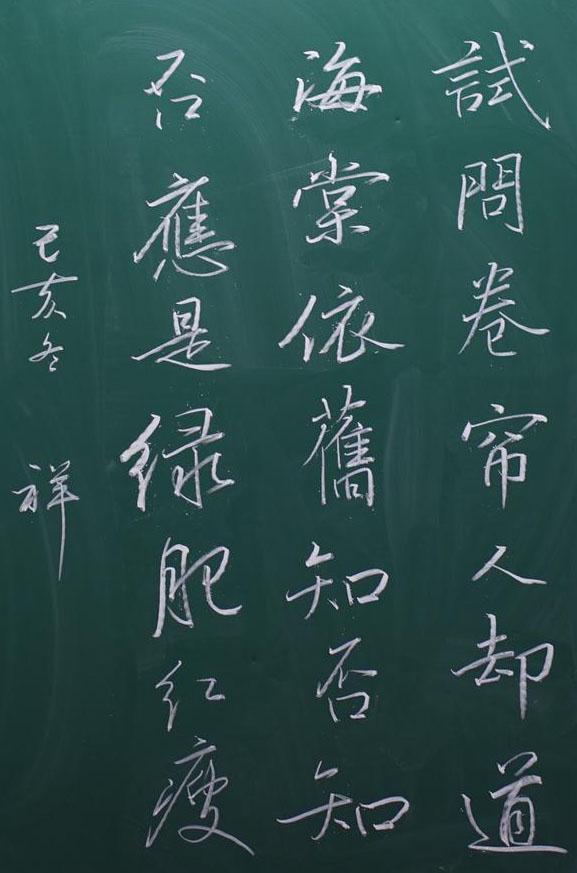 試問卷帘人却道
海棠依舊知否知
否應是绿肥红瘦
己亥冬 祥